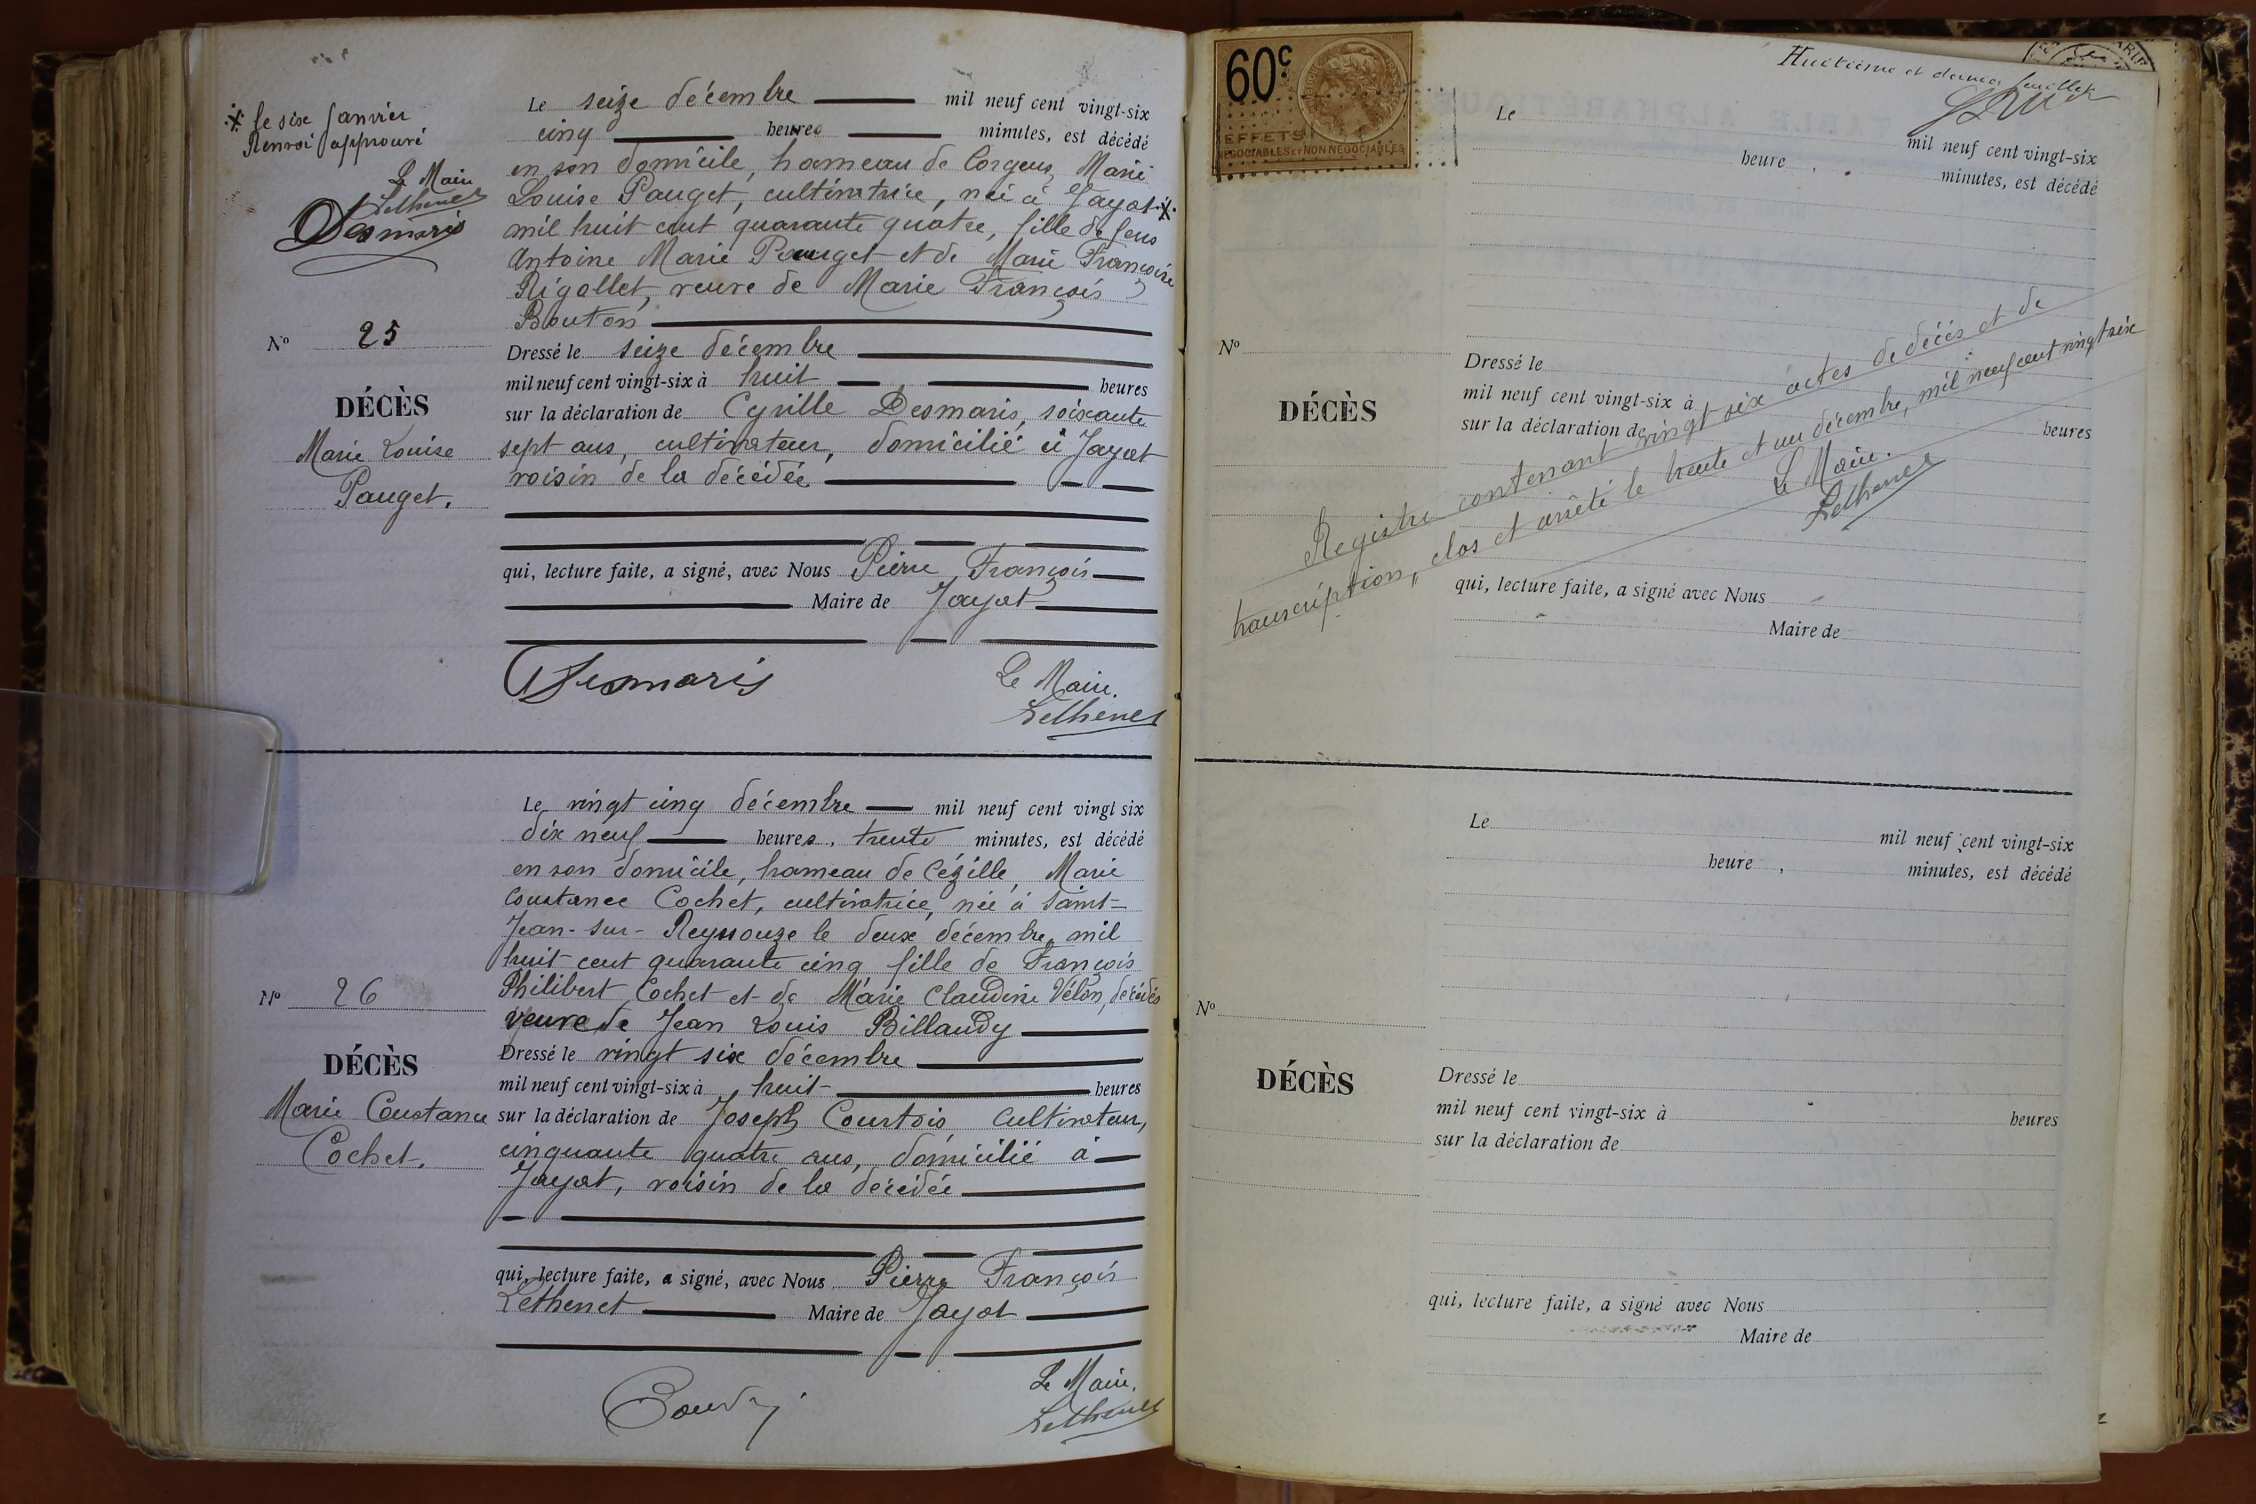 * le six janvier
Renvoi approuvé
Le Maire
Lethenet
Desmaris
Le seize décembre mil neuf cent vingt-six
cinq heures minutes, est décédé
en son domicile, hameau de Corgeus, Marie
Louise Pauget, cultivatrice, née à Jayat *
mil huit cent quarante quatre, fille de feus
Antoine Marie Pauget et de Marie Françoise
Rigollet, veuve de Marie François
Bouton
No 25
DÉCÈS
Marie Louise
Pauget.
Dressé le seize décembre
mil neuf cent vingt-six à huit heures
sur la déclaration de Cyrille Desmaris, soixante
sept ans, cultivateur, domicilié à Jayat
voisin de la décédée
qui, lecture faite, a signé, avec Nous Pierre François
Maire de Jayat
Desmaris
Le Maire.
Lethenet
Le vingt cinq décembre mil neuf cent vingt six
dix neuf heures, trente minutes, est décédé
en son domicile, hameau de Cézille, Marie
Constance Cochet, cultivatrice, née à Saint-
Jean-sur-Reyssouze le deux décembre mil
huit cent quarante cinq fille de François
Philibert Cochet et de Marie Claudine Vélon, décédés
veuve de Jean Louis Billaudy
No 26
DÉCÈS
Marie Constance
Cochet.
Dressé le vingt six décembre
mil neuf cent vingt-six à huit heures
sur la déclaration de Joseph Courtois cultivateur,
cinquante quatre ans, domicilié à
Jayat, voisin de la décédée
qui, lecture faite, a signé, avec Nous Pierre François
Lethenet Maire de Jayat
Le Maire.
Lethenet
60c
EFFETS
NÉGOCIABLES ET NON NÉGOCIABLES
Huitième et dernier feuillet
Le mil neuf cent vingt-six
heure, minutes, est décédé
No
DÉCÈS
Dressé le
mil neuf cent vingt-six à heures
sur la déclaration de
Registre contenant vingt six actes de décès et de
transcription, clos et arrêté le trente et un décembre, mil neuf cent vingt six
Le Maire.
Lethenet
qui, lecture faite, a signé avec Nous
Maire de
Le mil neuf cent vingt-six
heure, minutes, est décédé
No
DÉCÈS
Dressé le
mil neuf cent vingt-six à heures
sur la déclaration de
qui, lecture faite, a signé avec Nous
Maire de